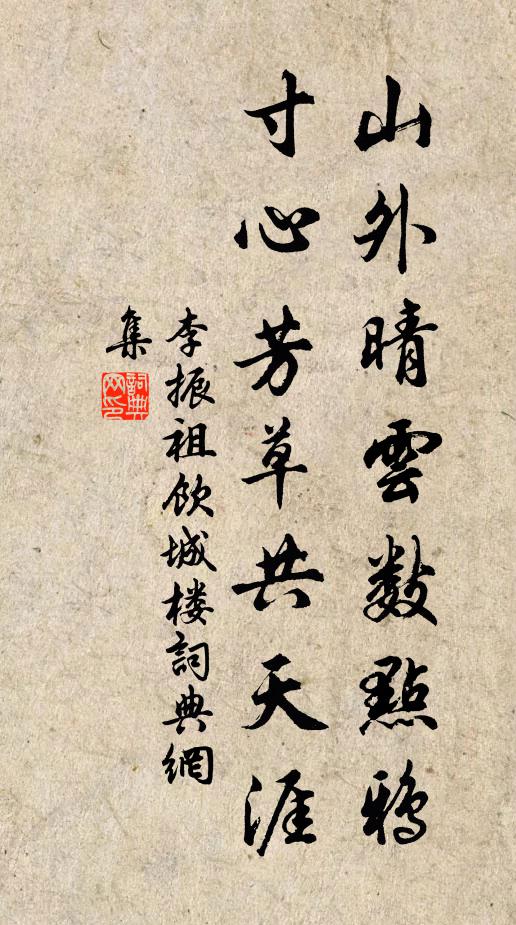 山外晴雲數點鴉
寸心芳草共天涯
李振祖飲城樓詞典網
集
詞典
网印